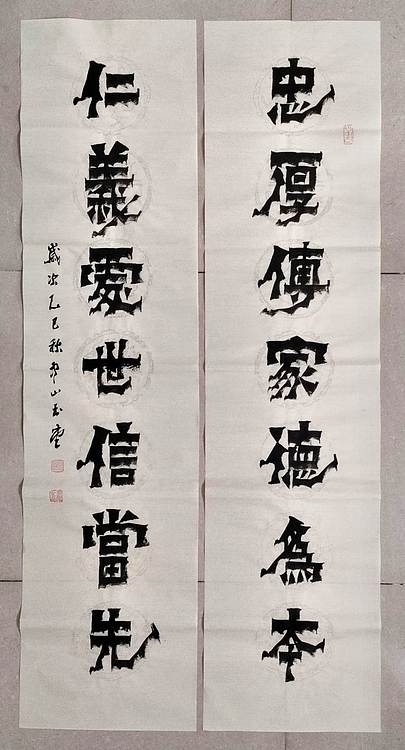 忠厚傳家德為本
仁義處世信當先
歲次乙巳秋